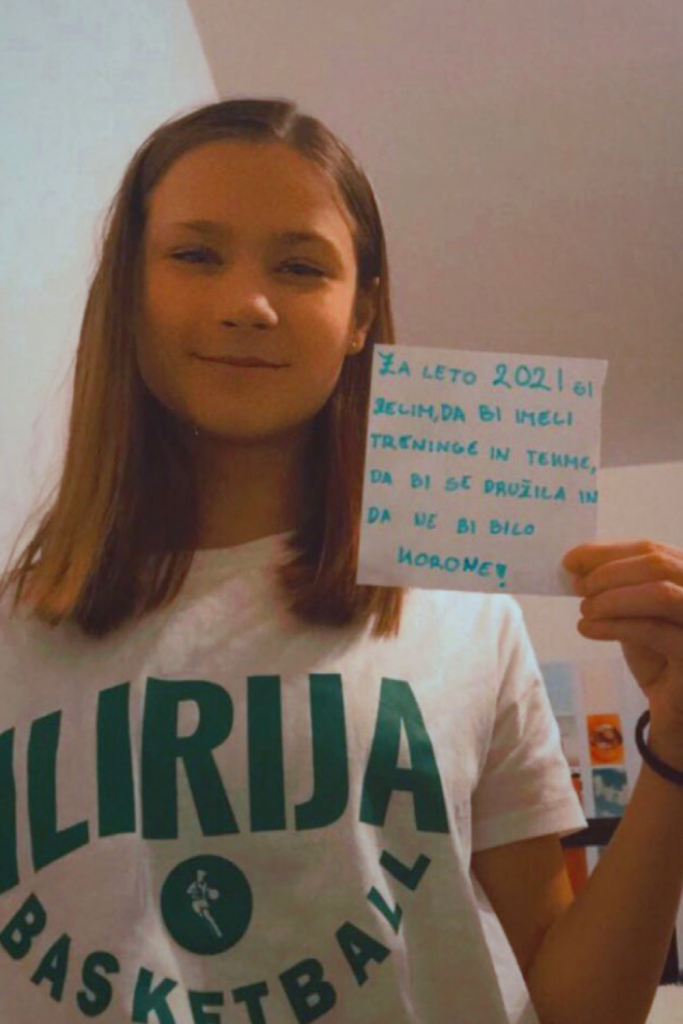 ZA LETO 2021 SI
ŽELIM, DA BI IMELI
TRENINGE IN TEKME,
DA BI SE DRUŽILA IN
DA NE BI BILO
KORONE!
ILIRIJA
BASKETBALL